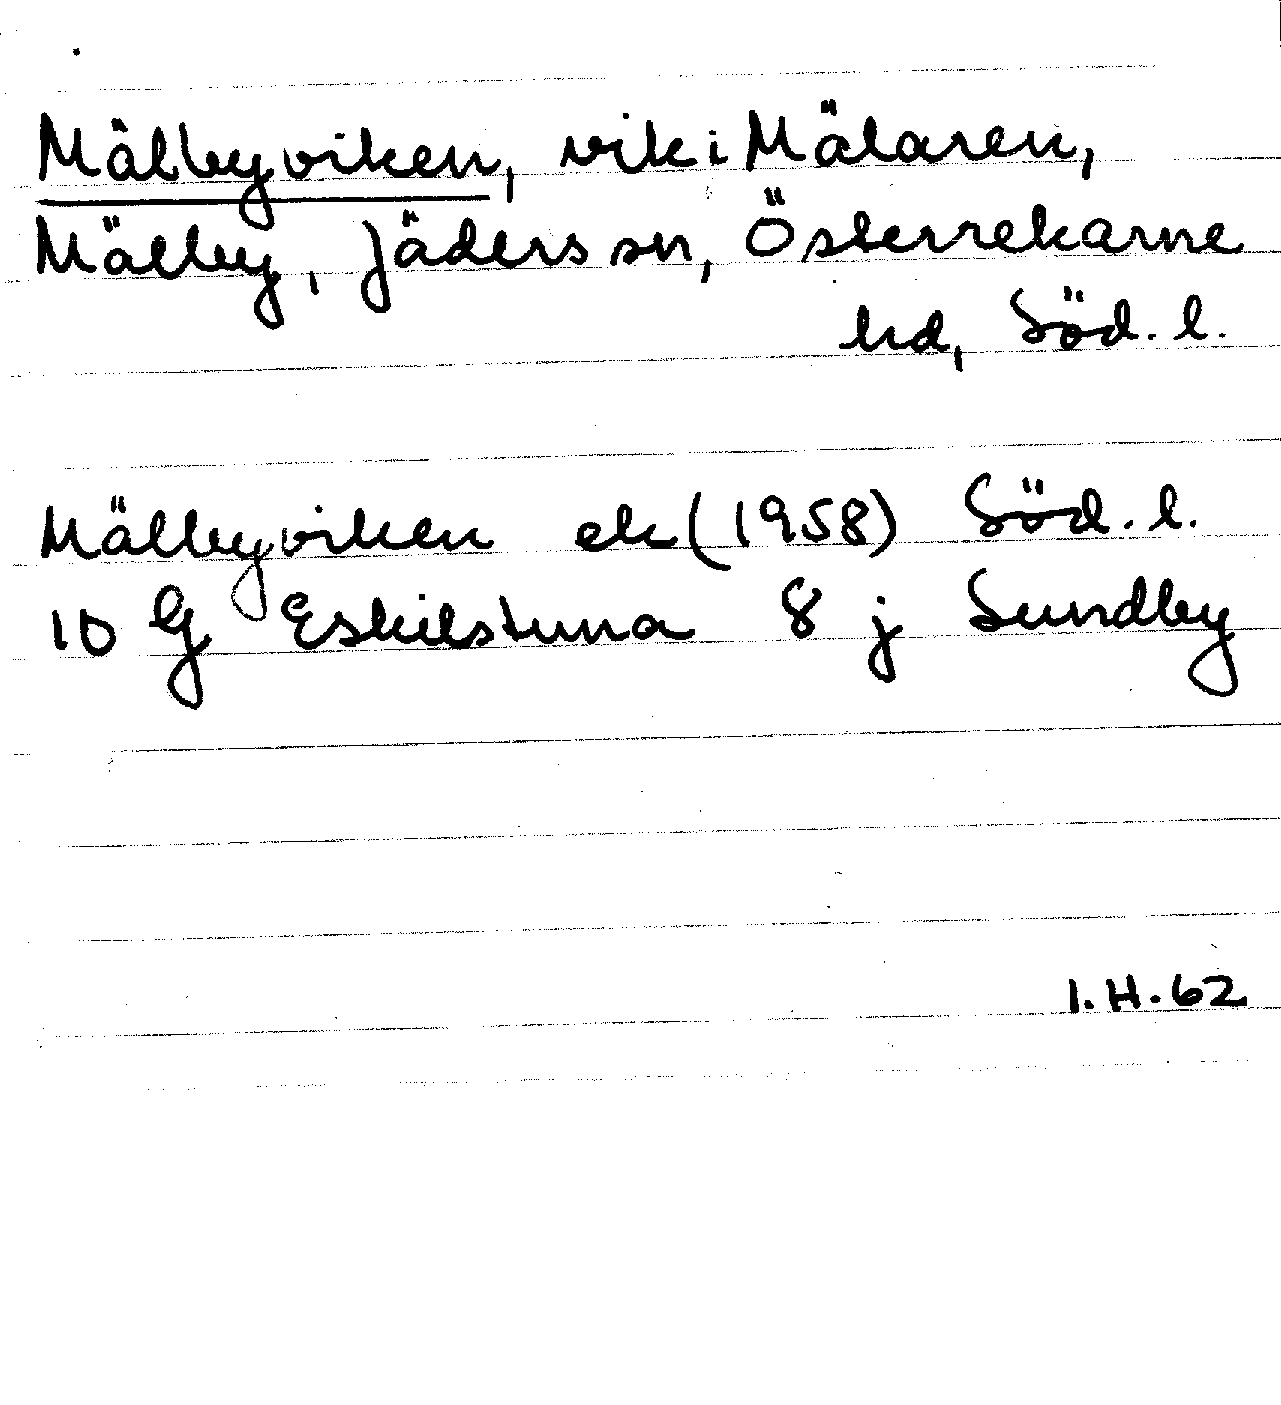 Mälbyviken, vik i Mälaren,
Mälby, Jäders sn, Österrekarne
hd, Söd. l.
Mälbyviken ek (1958) Söd. l.
10 G Eskilstuna 8 j Sundby
I.H.62